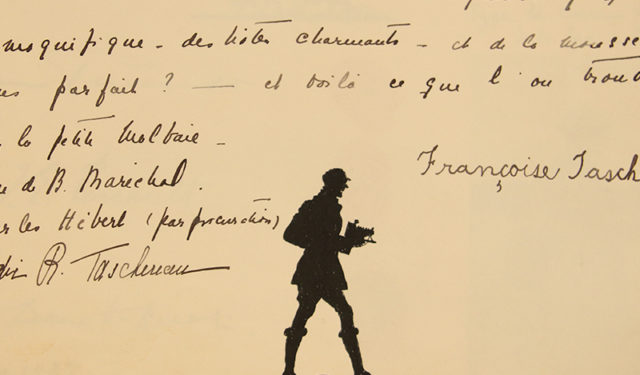 magnifique - des hôtes charmants - et de la
parfait ? — et voilà ce que l'on
la petite Malbaie -
de B. Maréchal.
les Hébert (par procuration)
R. Taschereau
Françoise Tasch